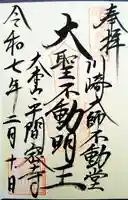 奉拝
川崎大師不動堂
大聖不動明王
大本山平間寺
令和七年二月十一日